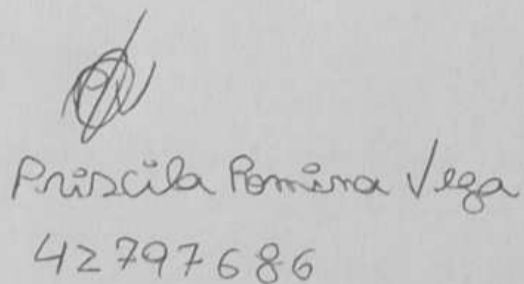 Priscila Romina Vega
42797686